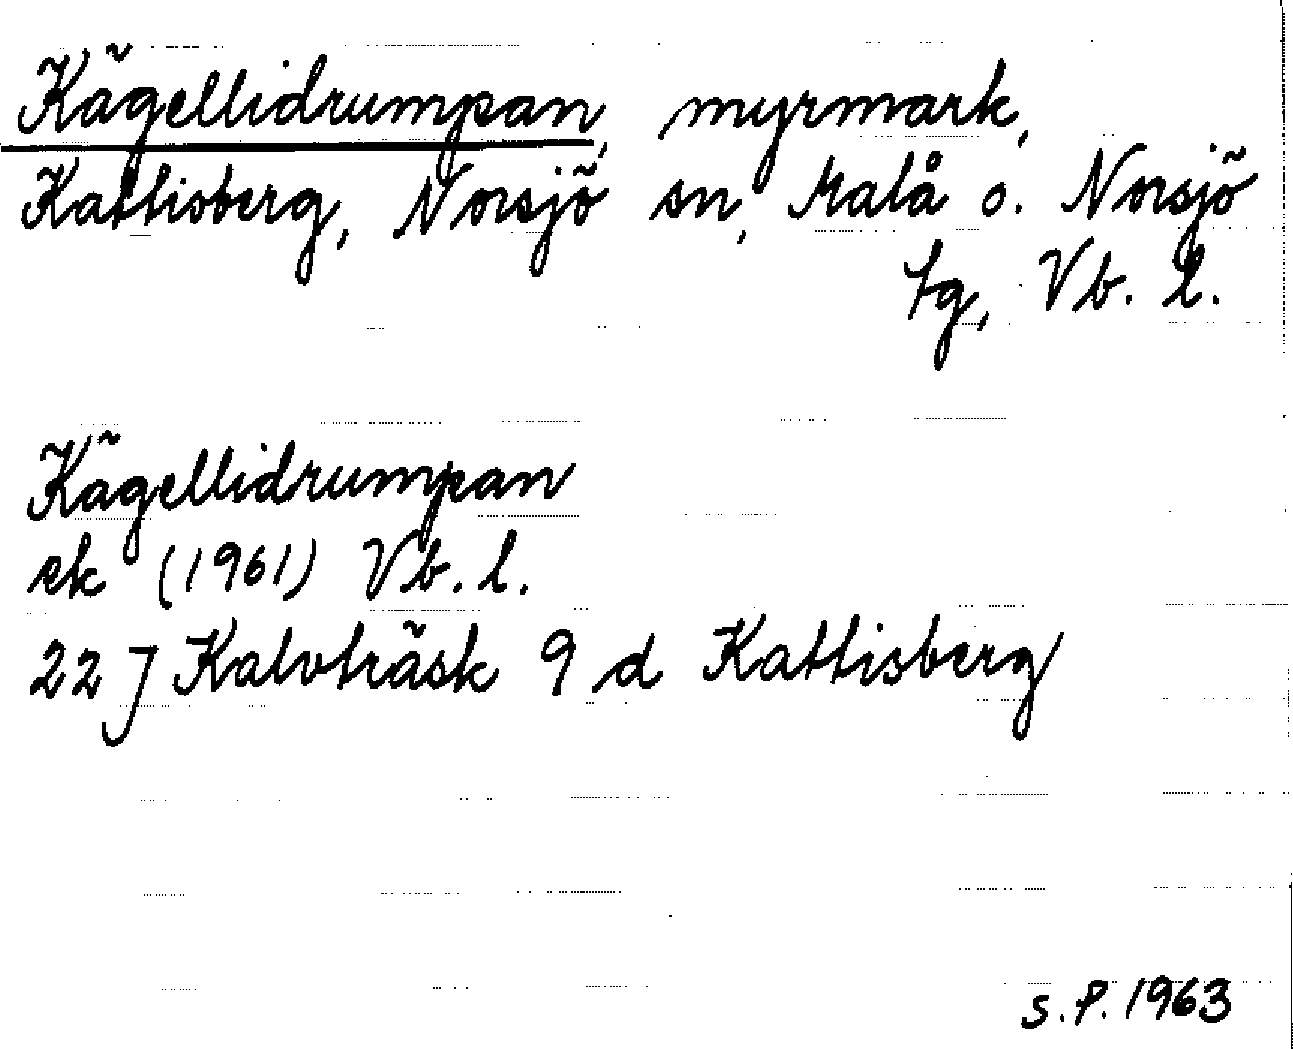 Kägellidrumpan, myrmark,
Kattisberg, Norsjö sn, Malå o. Norsjö
tg, Vb. l.
Kägellidrumpan
ek (1961) Vb. l.
22 J Kalvträsk 9 d Kattisberg
S. P. 1963